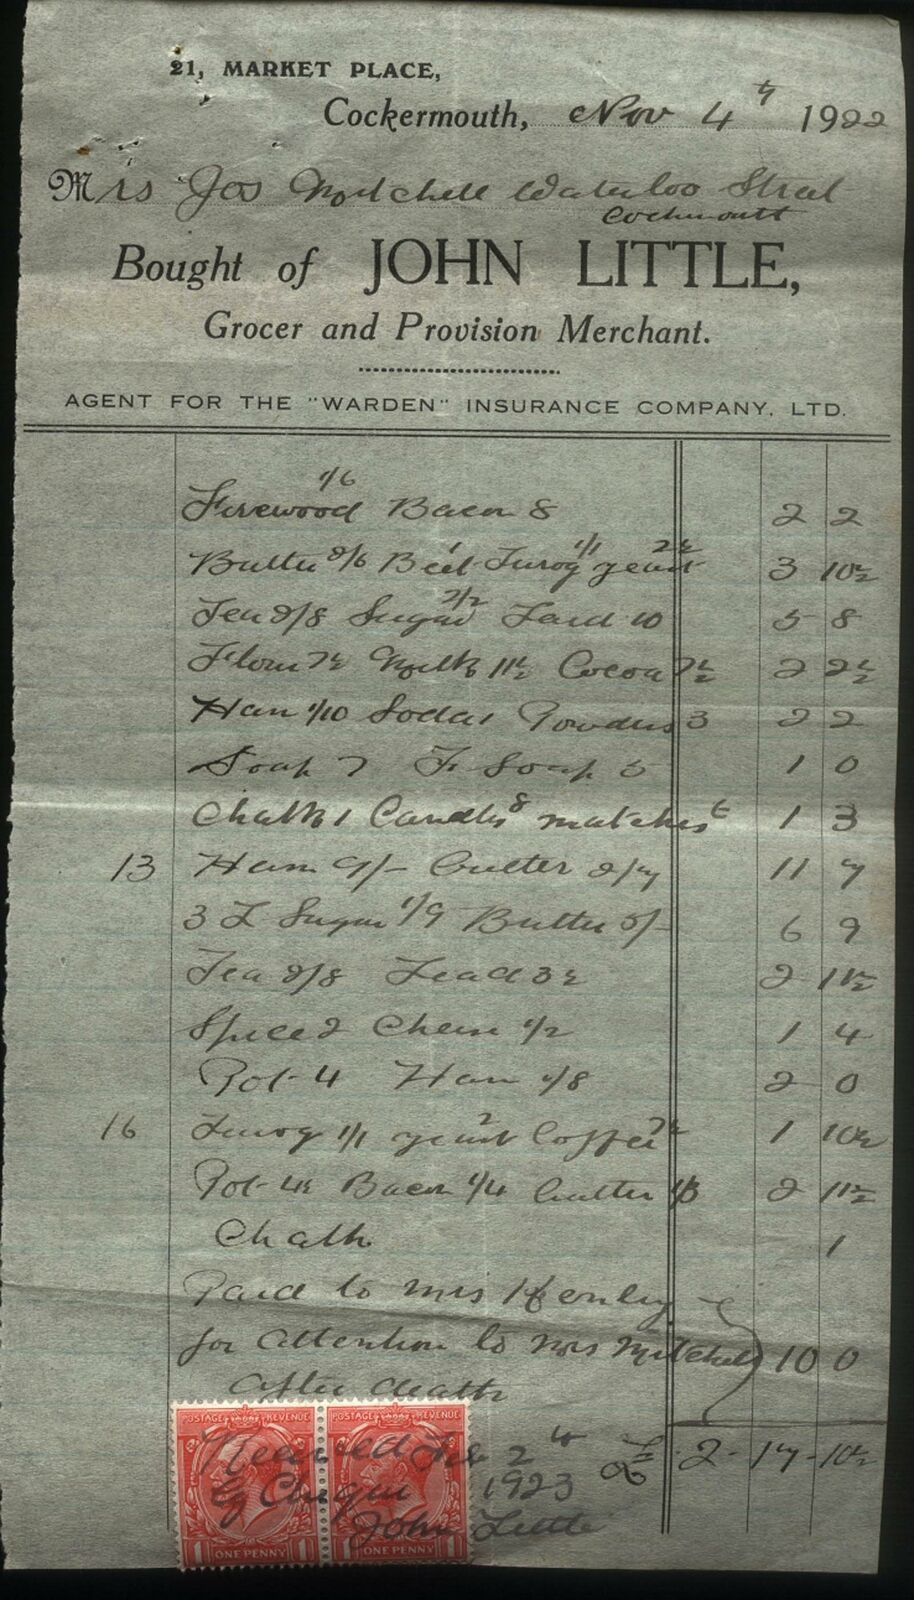 21, MARKET PLACE,
Cockermouth, Nov 4th 1922
Mrs Jos Mitchell Waterloo Street
Cockermouth
Bought of JOHN LITTLE,
Grocer and Provision Merchant.
AGENT FOR THE "WARDEN" INSURANCE COMPANY, LTD.
Firewood 1/6 Bacon 8 2 2
Butter 2/6 1 Turog 1/1 yeast 2½ 3 10½
Tea 2/8 Sugar 2/2 Lard 10 5 8
Flour 7½ Milk 11½ Cocoa 7½ 2 2½
Ham 1/10 Soda 1 Powders 3 2 2
Soap 7 F Soap 5 1 0
Chalk 1 Candles 8 matches 6 1 3
13 Ham 9/- Butter 2/7 11 7
3 L Sugar 1/9 Butter 5/- 6 9
Tea 2/8 3½ 2 11½
Spice 2 Cheese 1/2 1 4
Pot 4 Ham 1/8 2 0
16 Turog 1/1 yeast 2 Coffee 7½ 1 10½
Pot 4½ Bacon 1/4 Butter 1/3 2 11½
Chalk 1
Paid to Mrs Henley
for attention to Mrs Mitchell 10 0
after death
£ 2-17-10½
POSTAGE REVENUE POSTAGE REVENUE
Received Feb 2nd
by Cheque 1923
John Little
1 ONE PENNY 1 1 ONE PENNY 1